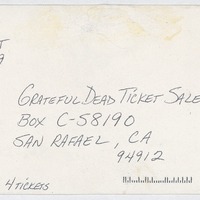 GRATEFUL DEAD TICKET SALE
BOX C-58190
SAN RAFAEL, CA
94912
4 TICKETS